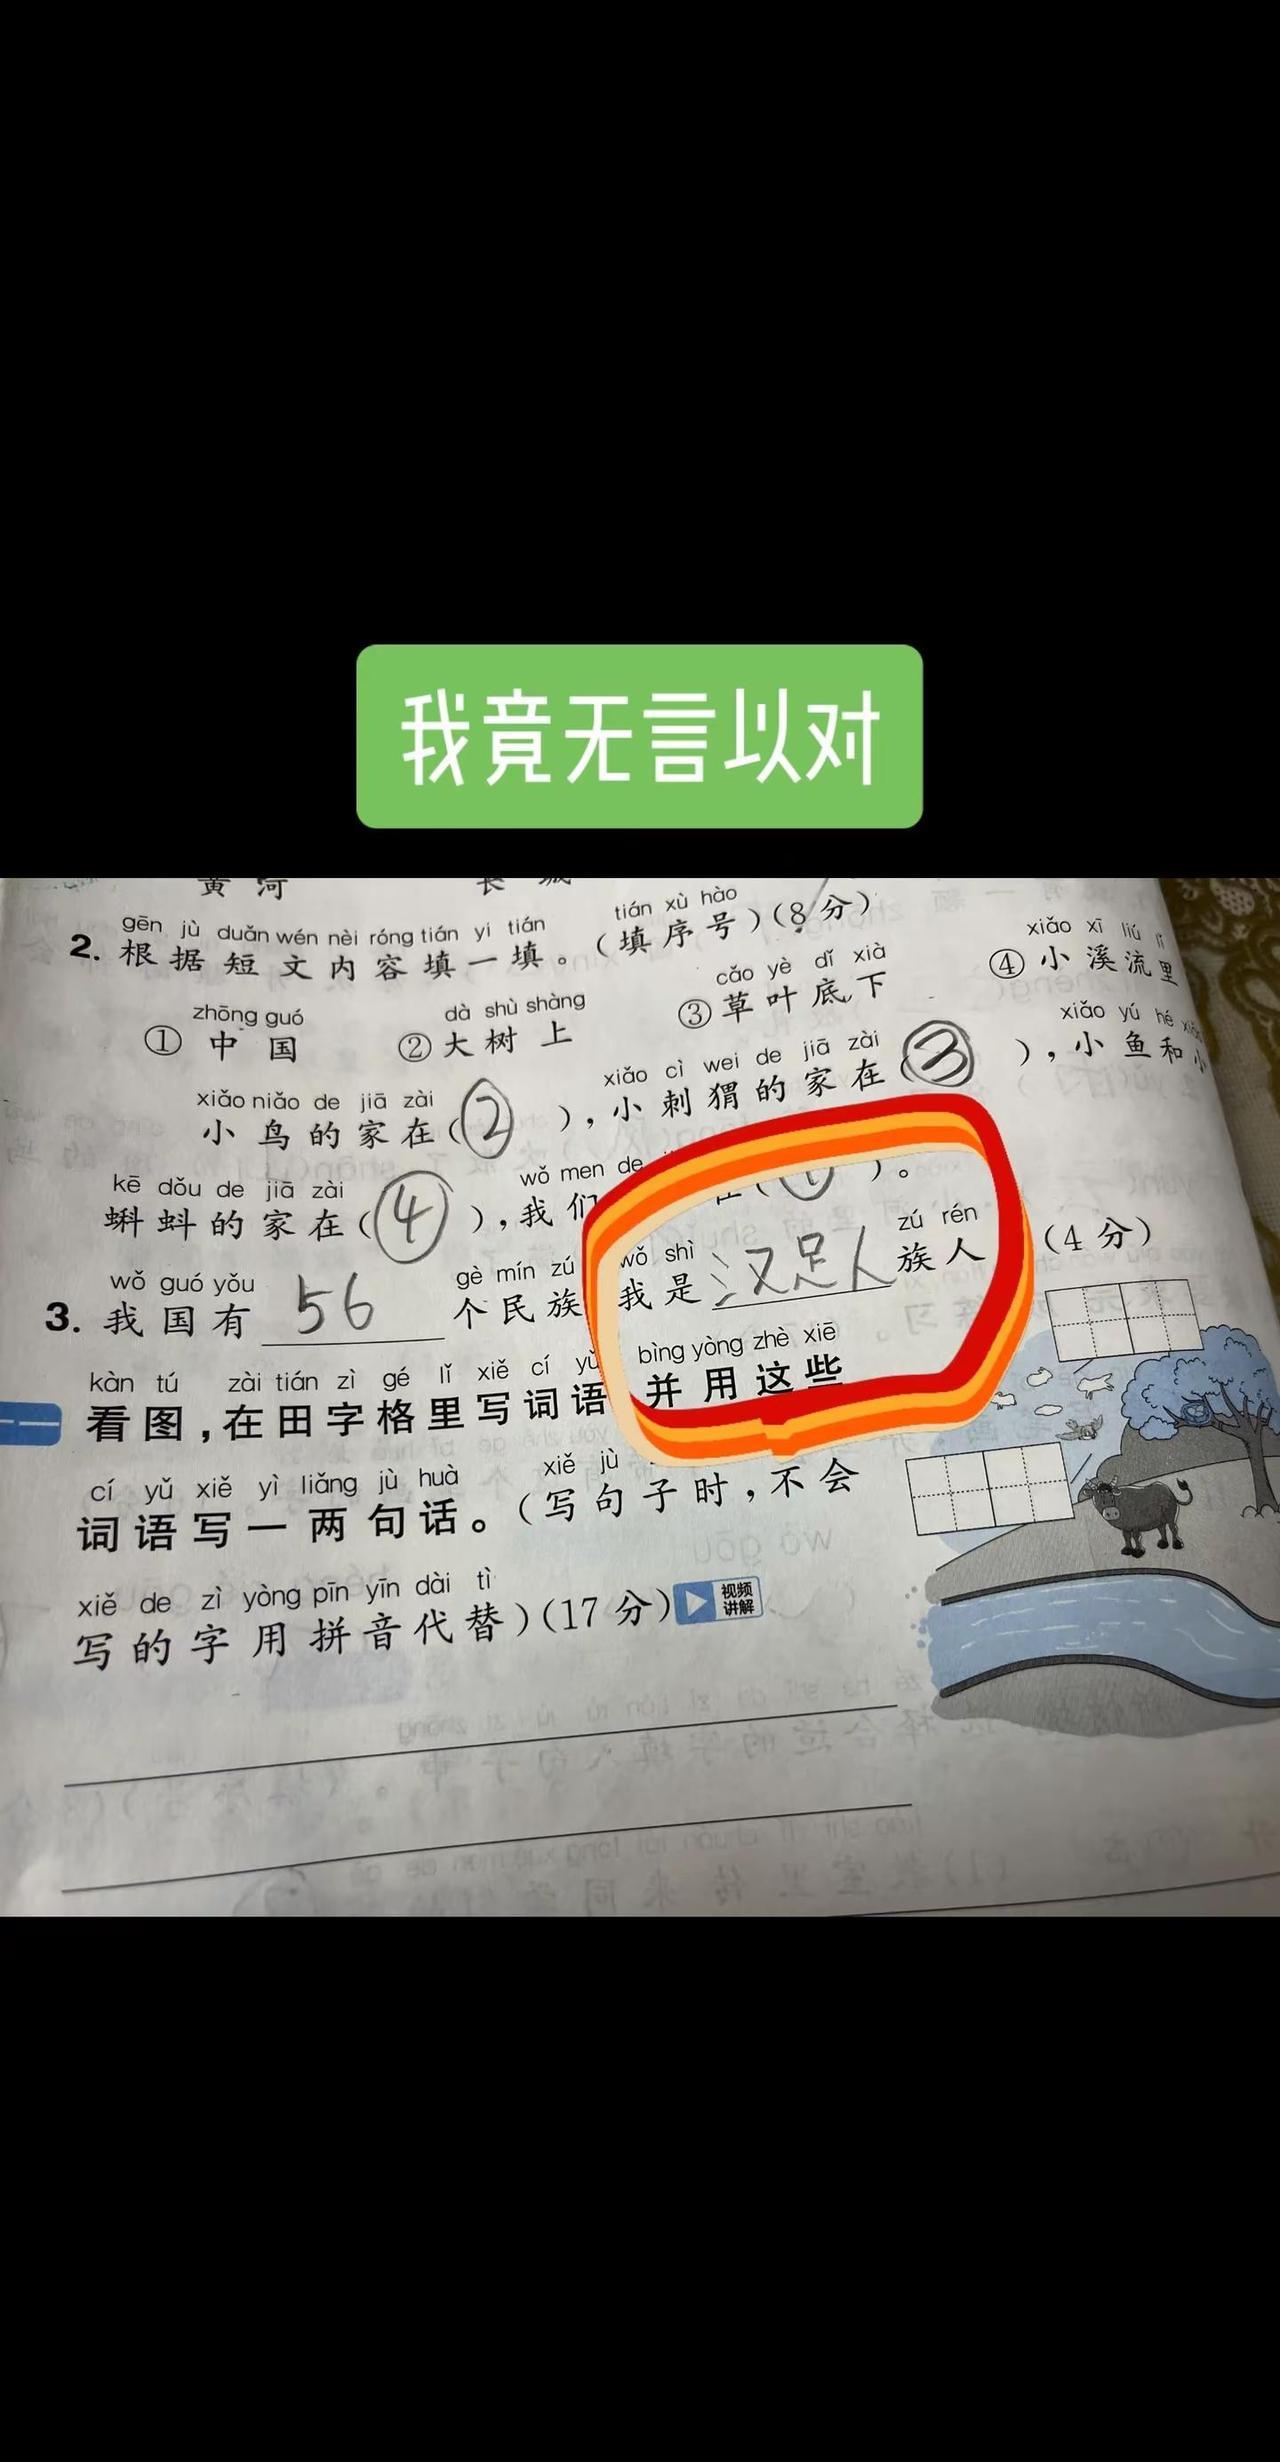 我竟无言以对
黄河 长城
gēn jù duǎn wén nèi róng tián yi tián tián xù hào
2. 根据短文内容填一填。(填序号)(8分)
zhōng guó dà shù shàng cǎo yè dǐ xià xiǎo xī liú lǐ
①中国 ②大树上 ③草叶底下 ④小溪流里
xiǎo niǎo de jiā zài xiǎo cì wei de jiā zài xiǎo yú hé xiǎo
小鸟的家在(②),小刺猬的家在(③),小鱼和小
kē dǒu de jiā zài wǒ men de
蝌蚪的家在(④),我们 在(①)。
wǒ guó yǒu gè mín zú wǒ shì zú rén
3. 我国有56个民族 我是汉足人族人 (4分)
kàn tú zài tián zì gé lǐ xiě cí yǔ bìng yòng zhè xiē
看图,在田字格里写词语 并用这些
cí yǔ xiě yì liǎng jù huà xiě jù
词语写一两句话。(写句子时,不会
xiě de zì yòng pīn yīn dài tì
写的字用拼音代替)(17分) 视频讲解